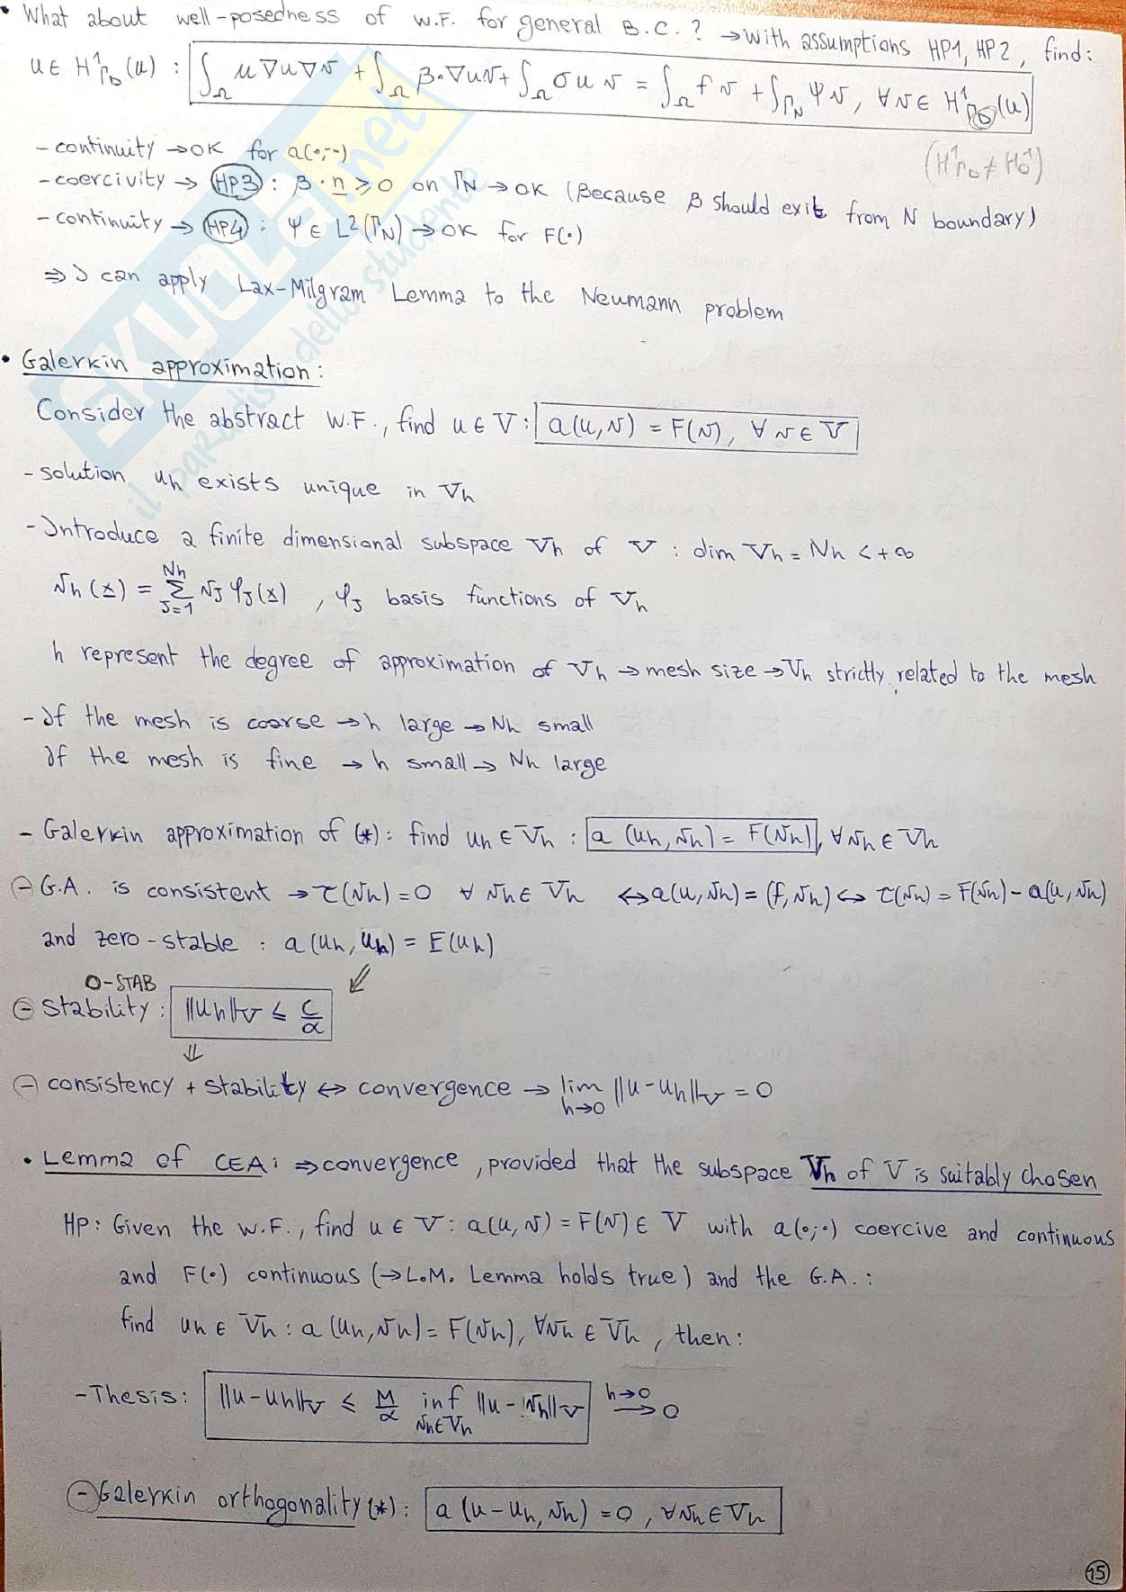 • What about well-posedness of W.F. for general B.C.? → with assumptions HP1, HP2, find:
u ∈ H¹_ΓD(Ω) : ∫_Ω μ∇u∇v + ∫_Ω β·∇uv + ∫_Ω σuv = ∫_Ω fv + ∫_ΓN ψv, ∀v ∈ H¹_ΓD(Ω)
(H¹_ΓD ≠ H¹_0)
- continuity → OK for a(·;·)
- coercivity → HP3 : β·n ≥ 0 on ΓN → OK (Because β should exit from N boundary)
- continuity → HP4 : ψ ∈ L²(ΓN) → OK for F(·)
⇒ I can apply Lax-Milgram Lemma to the Neumann problem
• Galerkin approximation:
Consider the abstract W.F., find u ∈ V : a(u,v) = F(v), ∀v ∈ V
- solution uh exists unique in Vh
- Introduce a finite dimensional subspace Vh of V : dim Vh = Nh < +∞
vh(x) = Σ_{J=1}^{Nh} vJ φJ(x) , φJ basis functions of Vh
h represent the degree of approximation of Vh → mesh size → Vh strictly related to the mesh
- If the mesh is coarse → h large → Nh small
If the mesh is fine → h small → Nh large
- Galerkin approximation of (*): find uh ∈ Vh : a(uh,vh) = F(vh), ∀vh ∈ Vh
- G.A. is consistent → τ(vh) = 0 ∀ vh ∈ Vh ↔ a(u,vh) = (f,vh) ↔ τ(vh) = F(vh) - a(u,vh)
and zero-stable : a(uh,uh) = F(uh)
0-STAB
- Stability : ||uh||V ≤ C/α
⇓
- consistency + stability ↔ convergence → lim_{h→0} ||u-uh||V = 0
• Lemma of CEA: ⇒ convergence, provided that the subspace Vh of V is suitably chosen
HP: Given the W.F., find u ∈ V : a(u,v) = F(v) ∈ V with a(·;·) coercive and continuous
and F(·) continuous (→ L.M. Lemma holds true) and the G.A.:
find uh ∈ Vh : a(uh,vh) = F(vh), ∀vh ∈ Vh, then:
- Thesis: ||u-uh||V ≤ M/α inf_{vh∈Vh} ||u-vh||V →(h→0) 0
- Galerkin orthogonality (*): a(u-uh,vh) = 0, ∀vh ∈ Vh
15
SKUOLA.net
il paradiso dello studente